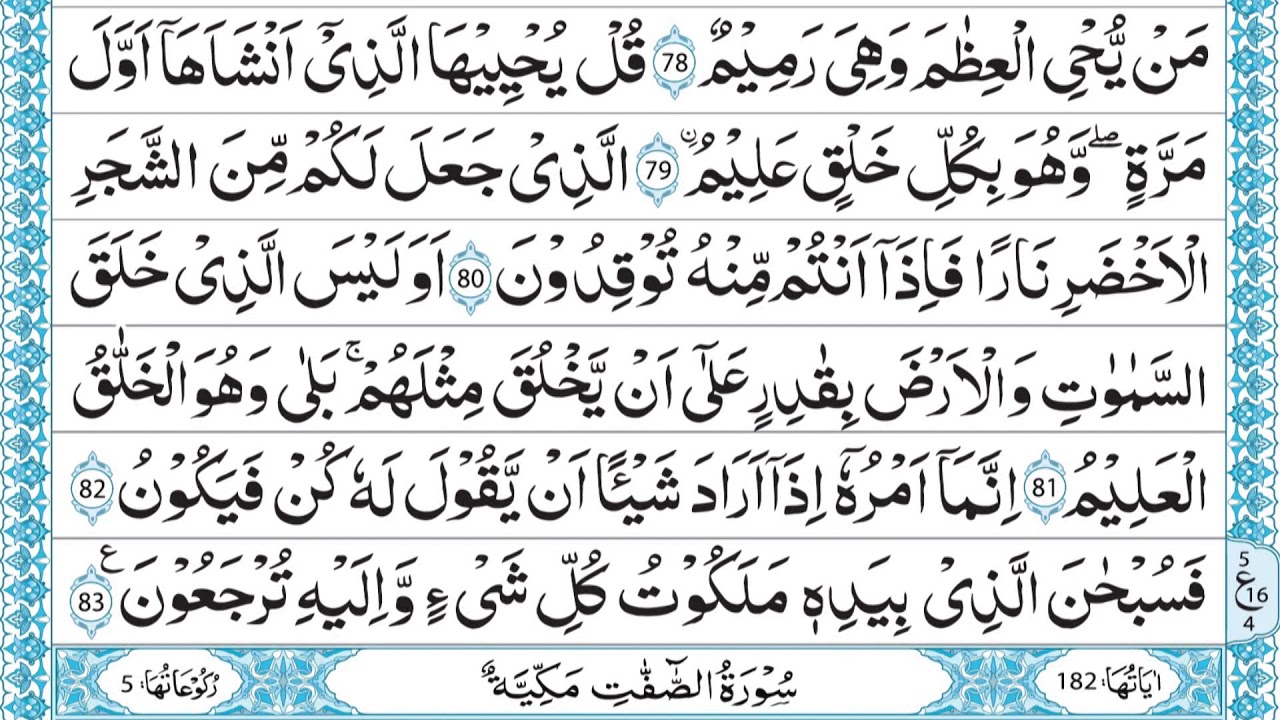 مَنۡ يُّحۡىِ الۡعِظٰمَ وَهِىَ رَمِيۡمٌ‏ ۙ 78 قُلۡ يُحۡيِيۡهَا الَّذِىۡۤ اَنۡشَاَهَاۤ اَوَّلَ
مَرَّةٍ ؕۖ وَّهُوَ بِكُلِّ خَلۡقٍ عَلِيۡمُ ۨ 79 الَّذِىۡ جَعَلَ لَكُمۡ مِّنَ الشَّجَرِ
الۡاَخۡضَرِ نَارًا فَاِذَاۤ اَنۡتُمۡ مِّنۡهُ تُوۡقِدُوۡنَ 80 اَوَلَيۡسَ الَّذِىۡ خَلَقَ
السَّمٰوٰتِ وَالۡاَرۡضَ بِقٰدِرٍ عَلٰٓى اَنۡ يَّخۡلُقَ مِثۡلَهُمۡ ؔؕۚ بَلٰى وَهُوَ الۡخَلّٰقُ
الۡعَلِيۡمُ 81 اِنَّمَاۤ اَمۡرُهٗۤ اِذَاۤ اَرَادَ شَيۡـــًٔا اَنۡ يَّقُوۡلَ لَهٗ كُنۡ فَيَكُوۡنُ 82
فَسُبۡحٰنَ الَّذِىۡ بِيَدِهٖ مَلَكُوۡتُ كُلِّ شَىۡءٍ وَّاِلَيۡهِ تُرۡجَعُوۡنَ ع 83
5
ع 16
4
اٰيَاتُهَا: 182 سُوۡرَةُ الصّٰٓفّٰتِ مَكِّيَّةٌ رُكُوۡعَاتُهَا: 5